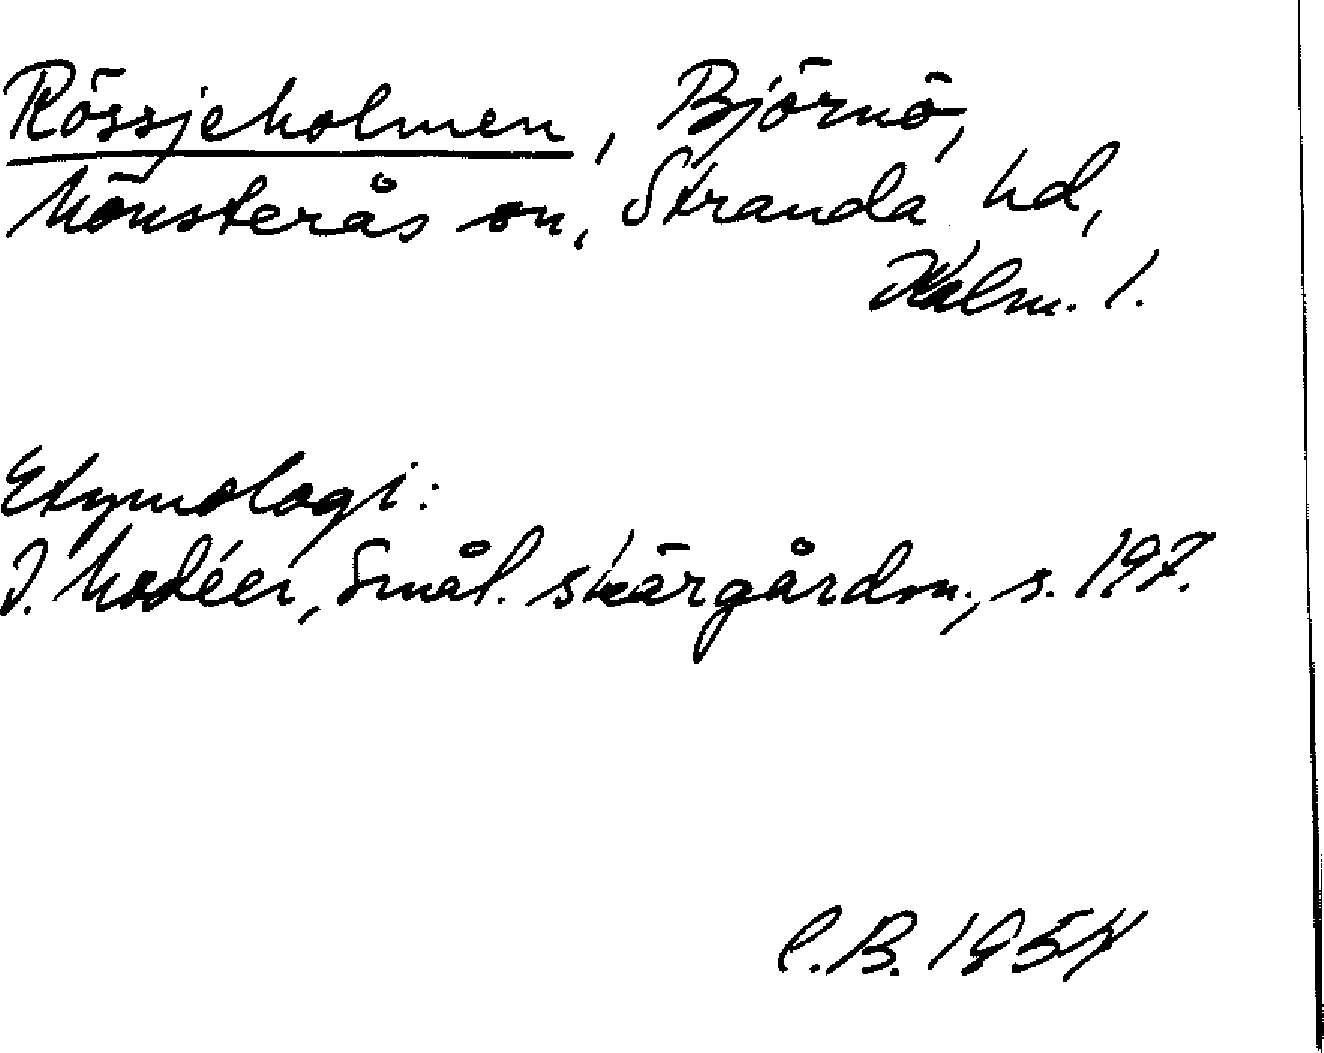 Rössjeholmen, Björnö,
Mönsterås sn, Stranda hd,
Kalm. l.
Etymologi:
I. Modéer, Smål. skärgårdsn., s. 197.
C.B. 1954